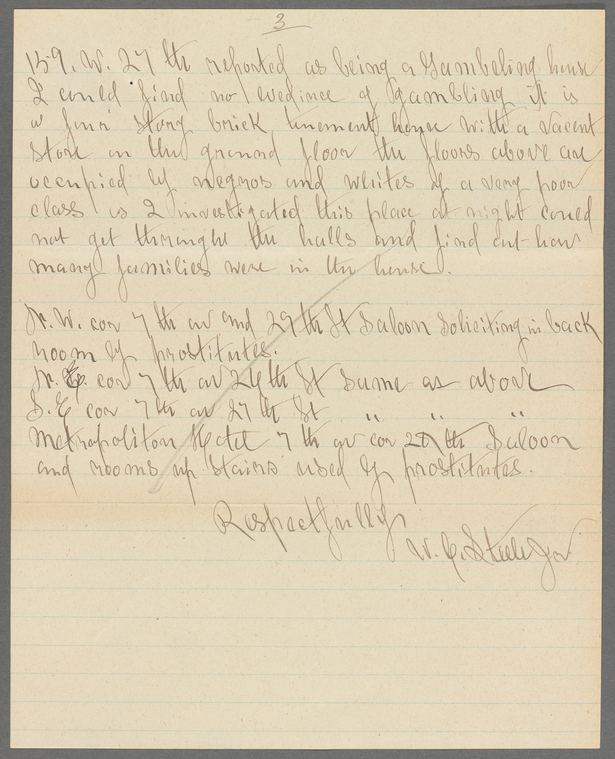 3
159. W. 27 th reported as being a Gambeling house
I could find no evedince of gambling It is
a four story brick tinement house with a vacent
store on the ground floor the floors above are
occupied by negros and whites of a very poor
class as I investigated this place at night could
not get throught the halls and find out how
many families were in the house.
N. W. cor 7 th av and 29 th St Saloon Soliciting in back
room by prostitutes.
N. E. cor 7 th av 26 th St same as above
S. E cor 7th av 27 th St " " "
Metropoliton Hotel 7 th av cor th Saloon
and rooms up stairs used by prostitutes.
Respectfully
W. C. Steele Jr